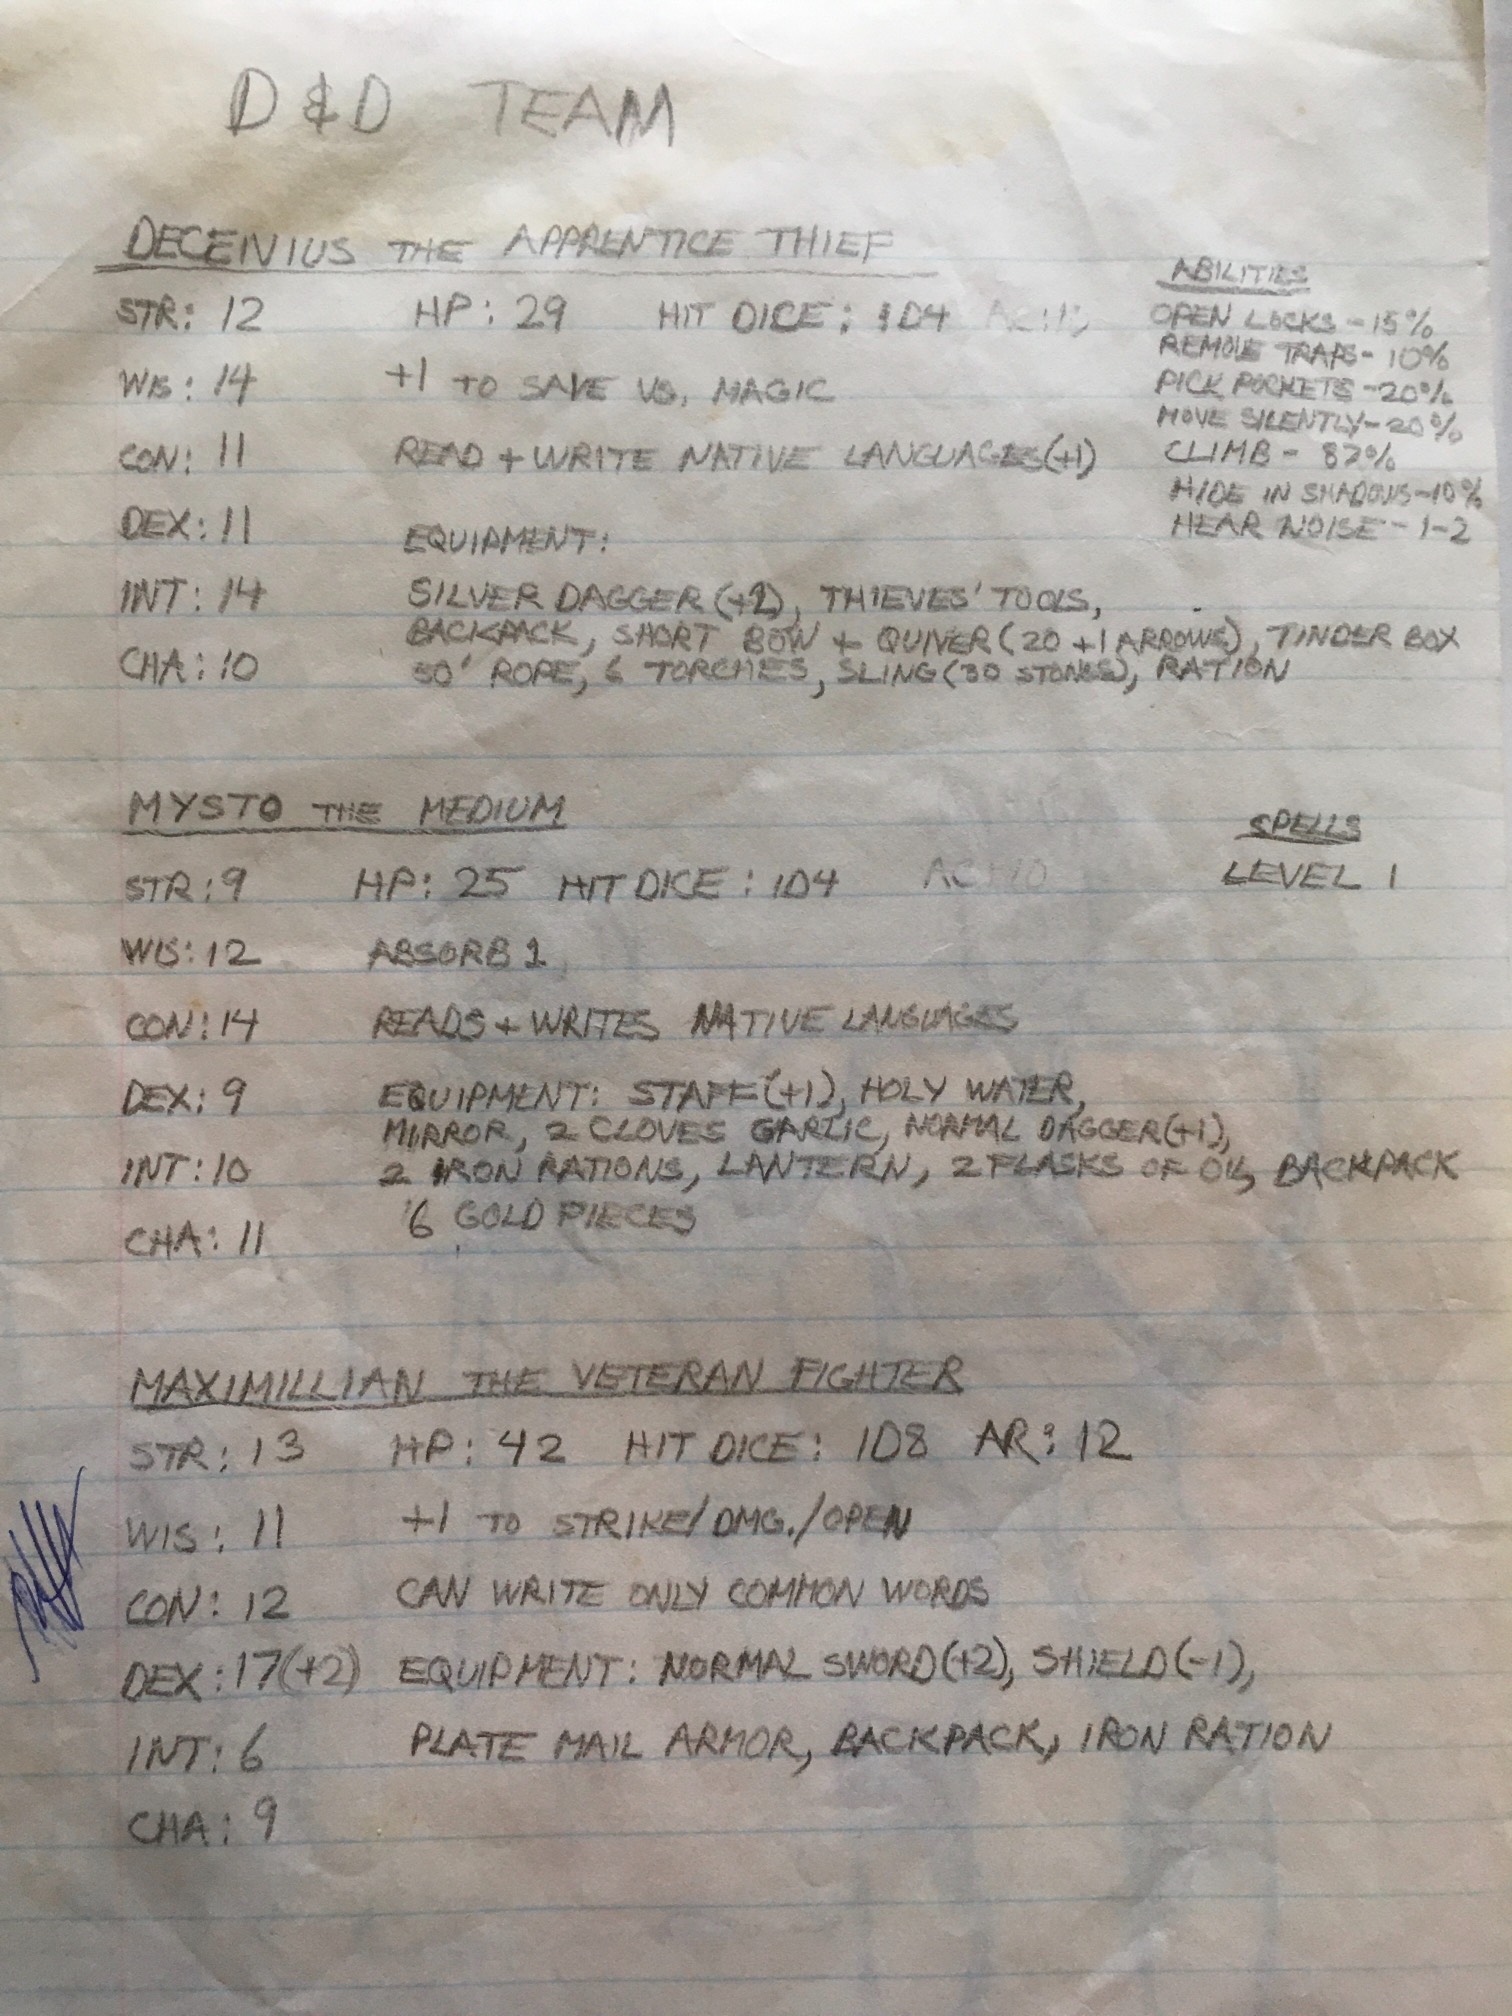 D & D TEAM
DECENIUS THE APPRENTICE THIEF
STR: 12 HP: 29 HIT DICE: 1D4
WIS: 14 +1 TO SAVE VS. MAGIC
CON: 11 READ + WRITE NATIVE LANGUAGES (+1)
DEX: 11
EQUIPMENT:
INT: 14 SILVER DAGGER (+2), THIEVES' TOOLS,
BACKPACK, SHORT BOW + QUIVER (20 +1 ARROWS), TINDER BOX
CHA: 10 50' ROPE, 6 TORCHES, SLING (30 STONES), RATION
ABILITIES
OPEN LOCKS - 15%
REMOVE TRAPS - 10%
PICK POCKETS - 20%
MOVE SILENTLY - 20%
CLIMB - 87%
HIDE IN SHADOWS - 10%
HEAR NOISE - 1-2
MYSTO THE MEDIUM
STR: 9 HP: 25 HIT DICE: 1D4 AC: 10
WIS: 12 ABSORB 1
CON: 14 READS + WRITES NATIVE LANGUAGES
DEX: 9 EQUIPMENT: STAFF (+1), HOLY WATER,
MIRROR, 2 CLOVES GARLIC, NORMAL DAGGER (+1),
INT: 10 2 IRON RATIONS, LANTERN, 2 FLASKS OF OIL, BACKPACK
6 GOLD PIECES
CHA: 11
SPELLS
LEVEL 1
MAXIMILLIAN THE VETERAN FIGHTER
STR: 13 HP: 42 HIT DICE: 1D8 AR: 12
WIS: 11 +1 TO STRIKE/DMG./OPEN
CON: 12 CAN WRITE ONLY COMMON WORDS
DEX: 17(+2) EQUIPMENT: NORMAL SWORD (+2), SHIELD (-1),
INT: 6 PLATE MAIL ARMOR, BACKPACK, IRON RATION
CHA: 9